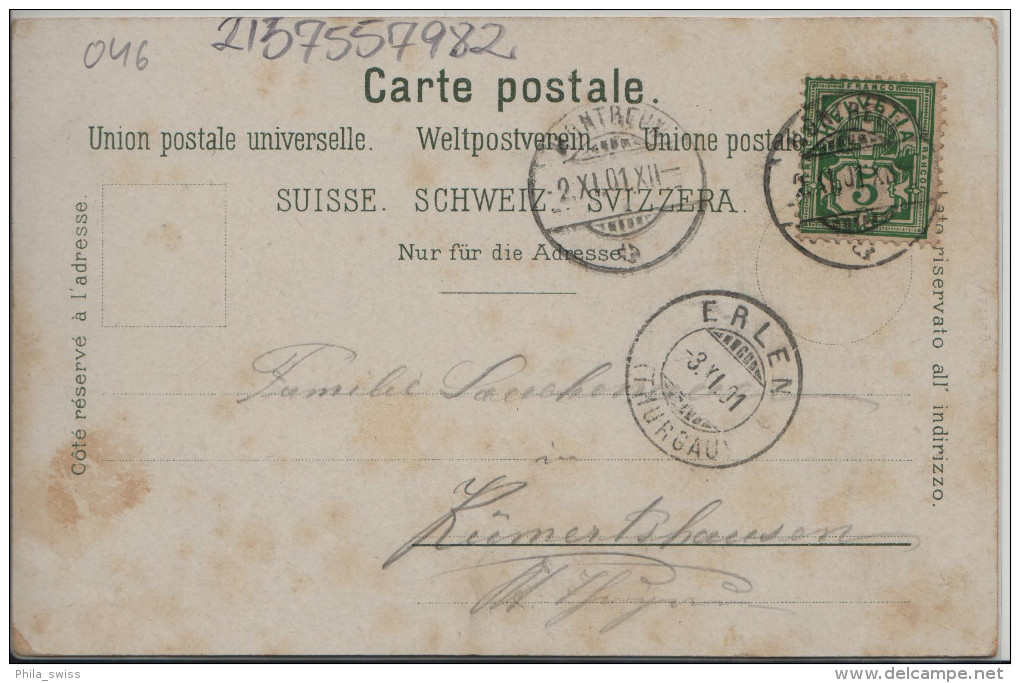 046
2137557982
Carte postale.
Union postale universelle. Weltpostverein. Unione postale
SUISSE. SCHWEIZ. SVIZZERA.
Nur für die Adresse.
Côté réservé à l'adresse.
riservato all' indirizzo.
FRANCO
FRANCO
5
MONTREUX
2.XI.01.XII
ERLEN
-3.XI.01
(THURGAU)
Familie
in
Kümertshausen
Phila_swiss
delcampe.net